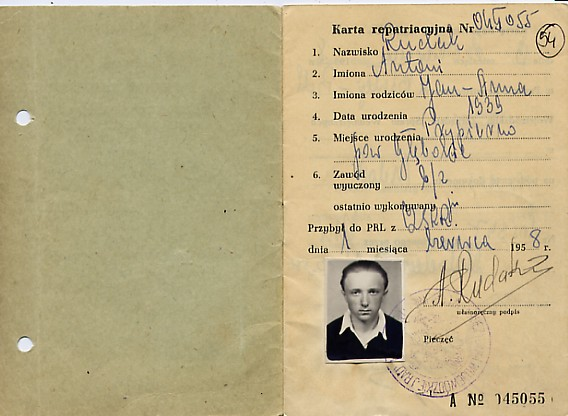 Karta repatriacyjna Nr 045055
54
1. Nazwisko Rudak
2. Imiona Antoni
3. Imiona rodziców Jan - Anna
4. Data urodzenia 1939
5. Miejsce urodzenia
pow. Głębokie
6. Zawód
wyuczony b/z
ostatnio wykonywany
Przybył do PRL z ZSRR
dnia 1 miesiąca czerwca 1958 r.
A. Rudak
własnoręczny podpis
Pieczęć
A № 045055